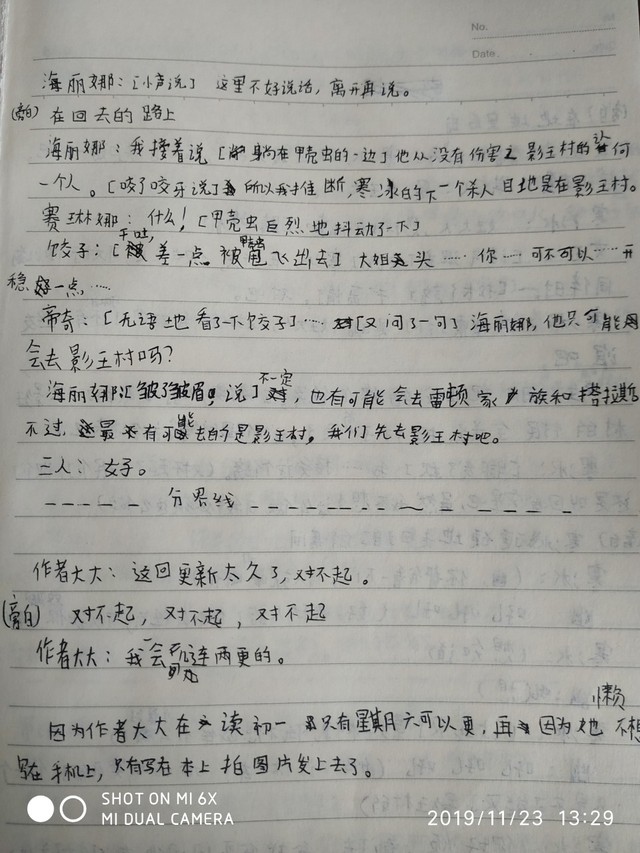 No:
Date.
海丽娜：[小声说] 这里不好说话，离开再说。
(旁白) 在回去的路上
海丽娜：我接着说 [躺在甲壳虫的一边] 他从没有伤害之影王村的任何
一个人。[咬了咬牙说] 所以我推断，寒冰的下一个杀人目地是在影王村。
赛琳娜：什么！[甲壳虫巨烈地抖动了一下]
饺子：[干呕，差一点被甲壳虫甩飞出去] 大姐头……你……可不可以……开
稳一点……
帝奇：[无语地看了一下饺子]……[又问了一句] 海丽娜，他只可能
会去影王村吗？
海丽娜：[皱了皱眉，说] 不一定，也有可能会去雷顿家族和塔拉斯
不过，最有可能去的是影王村，我们先去影王村吧。
三人：好。
----- 分界线 ----------
作者大大：这回更新太久了，对不起。
(旁白) 对不起，对不起，对不起
作者大大：我一会儿连两更的。
因为作者大大在读初一 只有星期六可以更，再因为她懒不想
写在手机上，只有写在本上拍图片发上去了。
SHOT ON MI 6X
MI DUAL CAMERA
2019/11/23 13:29